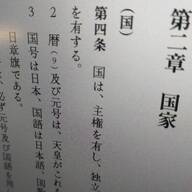 第二章　国家
（国）
第四条　国は、主権を有し、独立
を有する。
２　暦（９）及び元号は、天皇がこれ
３　国号は日本、国語は日本語、国歌
日章旗である。
元号及び国語を用